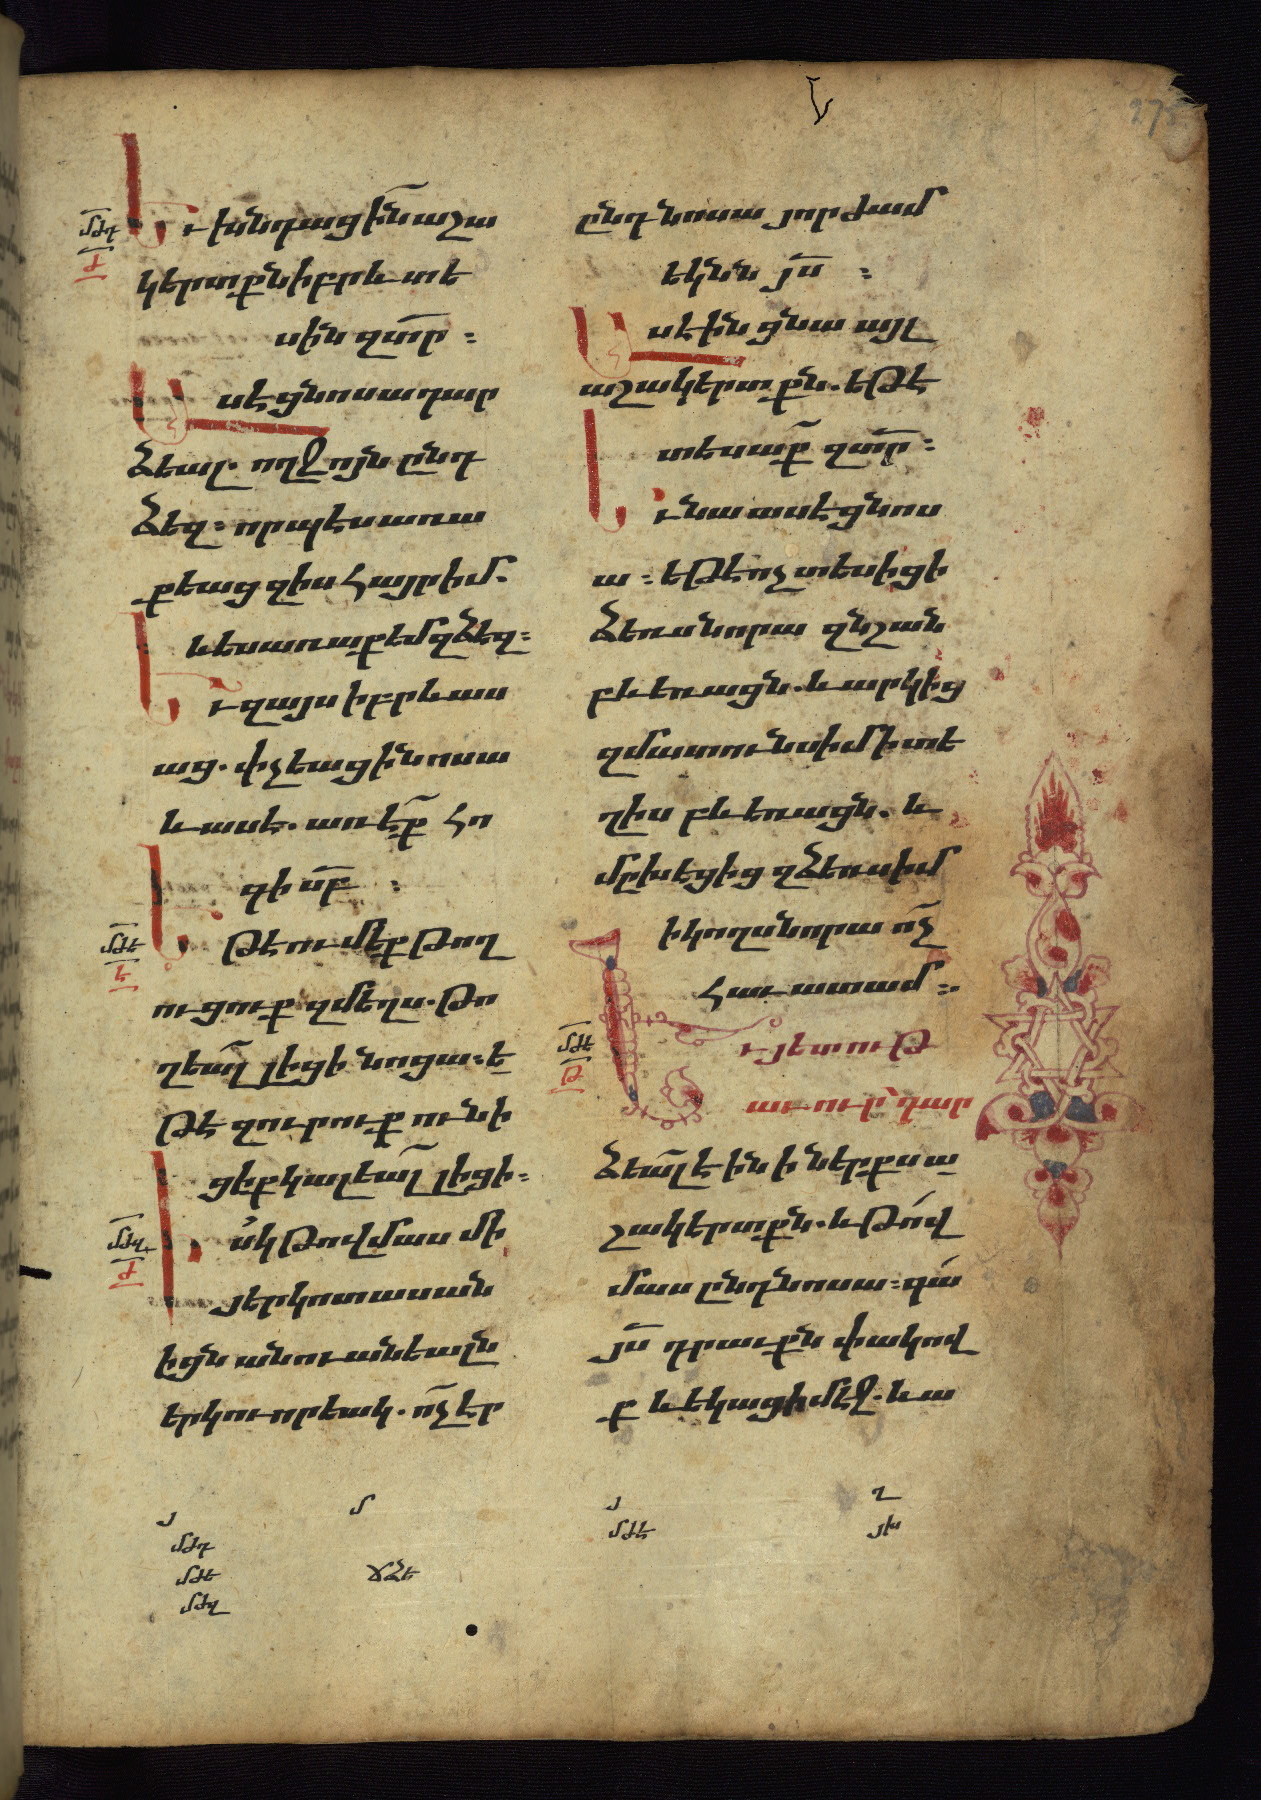 Ե
275
մժդ
ժ
Եւ խնդացին աշա
կերտքն իբրև տե
սին զտր ։
Ասէ ցնոսա դար
ձեալ. ողջոյն ընդ
ձեզ ։ որպէս առա
քեաց զիս հայր իմ.
և ես առաքեմ զձեզ ։
Եւ զայս իբրև աս
աց. փչեաց ի նոսա
և ասէ. առէք հո
գի սբ ։
մժե
է
Եթէ ումեք թող
ուցուք զմեղս. թո
ղեալ լիցի նոցա ։ ե
թէ զուրուք ունի
ցիք կալեալ լիցի ։
մժզ
ժ
Իսկ թովմաս մի
յերկոտասան
իցն անուանեալն
երկուորեակ. ոչ էր
ընդ նոսա յորժամ
եկնն յս ։
Ասէին ցնա այլ
աշակերտքն. եթէ
տեսաք զտր ։
Եւ նա ասէ ցնոս
ա ։ եթէ ոչ տեսից ի
ձեռս նորա զնշան
բևեռացն. և արկից
զմատունս իմ ի տե
ղիս բևեռացն. և
մխեցից զձեռս իմ
ի կողս նորա ոչ
հաւատամ ։
մժէ
թ
Եւ յետ ութ
աւուր դար
ձեալ էին ի ներքս ա
շակերտքն. և թով
մաս ընդ նոսա ։ գա
յս դրաւքն փակով
ք և եկաց ի մէջ. և ա
յ
մ
մժդ
մժե
ճհե
մժզ
յ
ղ
մժէ
յխ